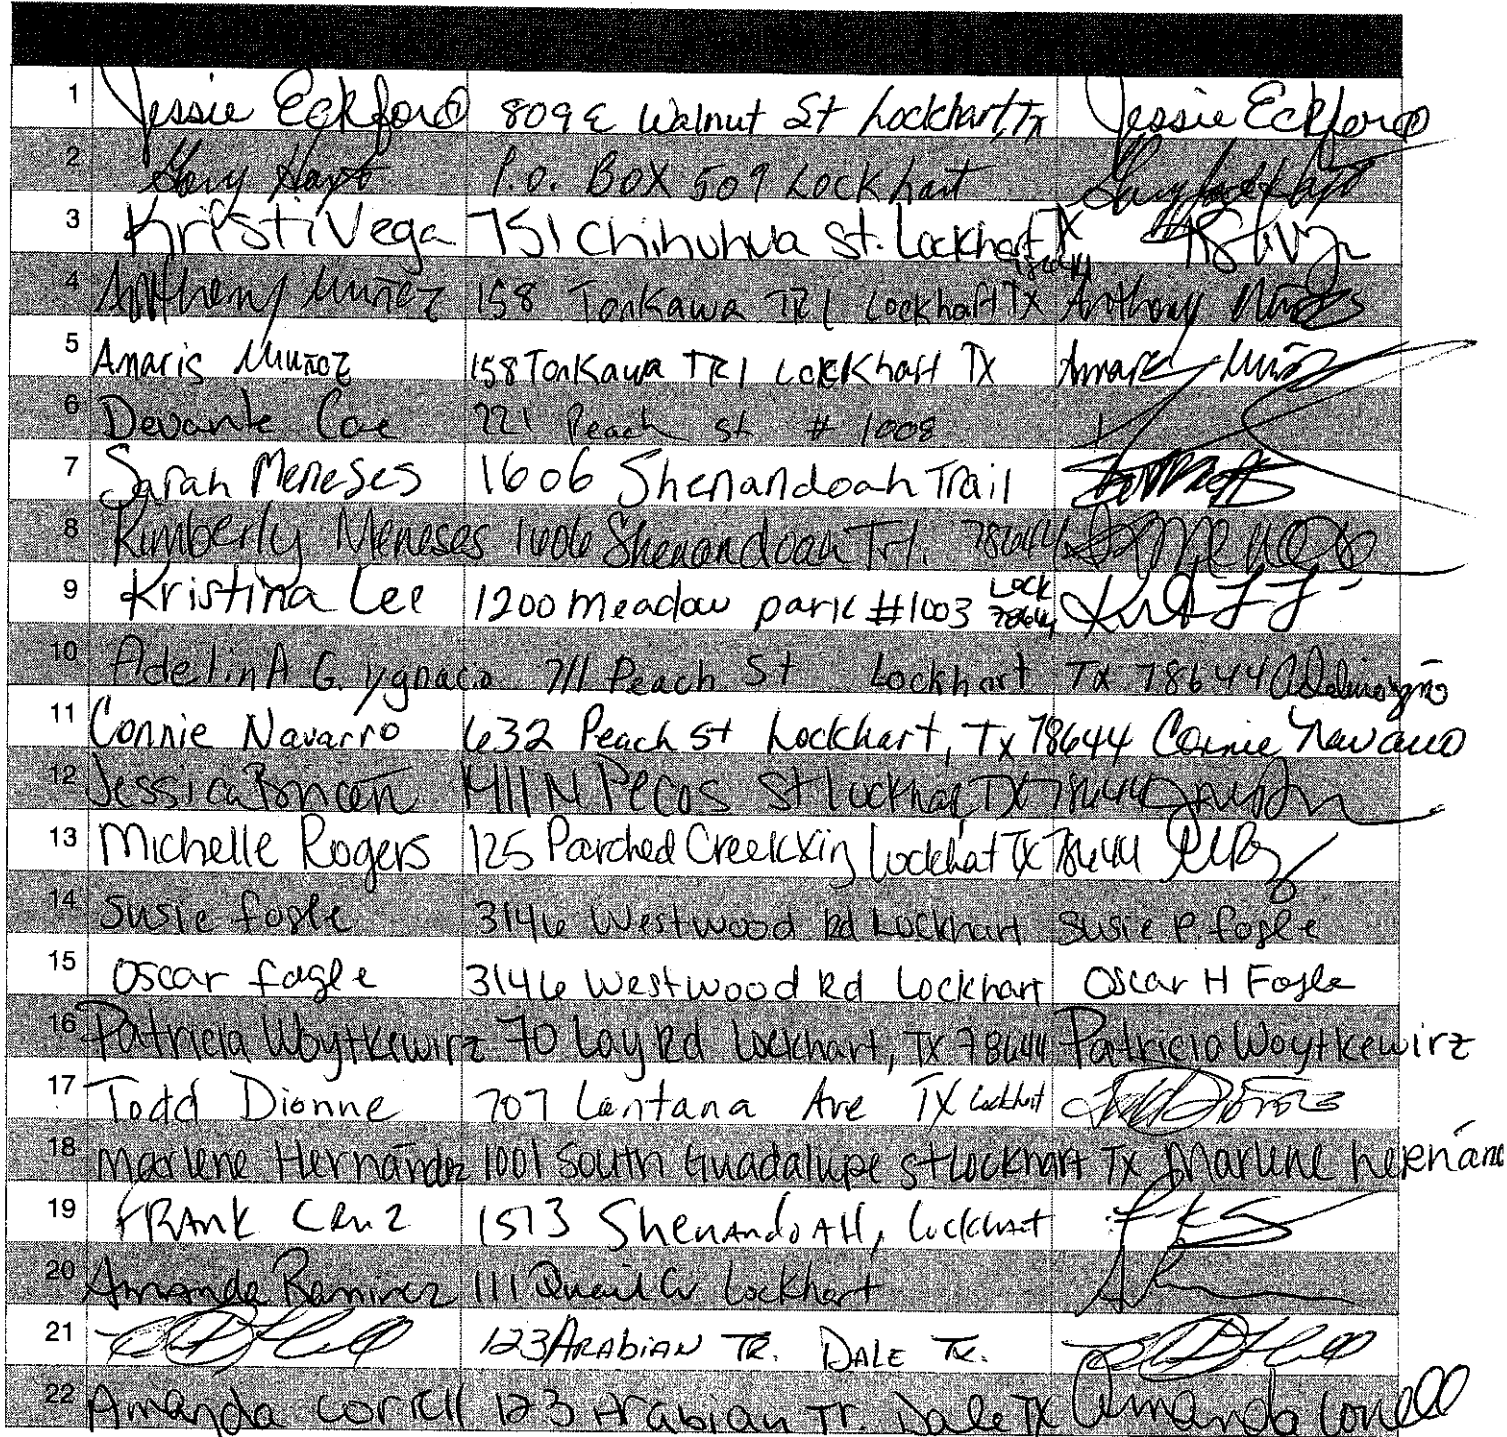 1 Jessie Eckford 809 E Walnut St Lockhart, Tx Jessie Eckford
2 Gary P.O. Box 509 Lockhart
3 Kristi Vega 751 Chihuhua St. Lockhart TX 78644
4 Anthony Muñoz 158 Tonkawa TRl Lockhart TX Anthony Muñoz
5 Amaris Muñoz 158 Tonkawa TRl Lockhart TX Amaris Muñoz
6 Devante Coe 221 Peach st # 1008
7 Sarah Meneses 1606 Shenandoah Trail
8 Kimberly Meneses 1606 Shenandoah Trl. 78644
9 Kristina Lee 1200 meadow park #1003 Lock 78644
10 Adelina G. Ygnacio 711 Peach St Lockhart Tx 78644
11 Connie Navarro 632 Peach St Lockhart, Tx 78644 Connie Navarro
12 Jessica 1411 N Pecos St Lockhar TX 78644
13 Michelle Rogers 125 Parched Creek Xing Lockhat TX 78644
14 Susie fogle 3146 Westwood Rd Lockhart Susie P fogle
15 Oscar fogle 3146 Westwood Rd Lockhart Oscar H Fogle
16 Patricia Woytkewirz 70 Lay Rd Lockhart, TX 78644 Patricia Woytkewirz
17 Todd Dionne 707 Lantana Ave TX Lockhart
18 Marlene Hernandez 1001 South Guadalupe St Lockhart Tx Marlene hernand
19 FRANK CRUZ 1513 ShenandoAH, Lockhart
20 Amanda Ramirez 111 Quail Cv Lockhart
21 123 ARABIAN TR. DALE TX.
22 Amanda Correll 123 Arabian Tr. Dale TX Amanda Correll